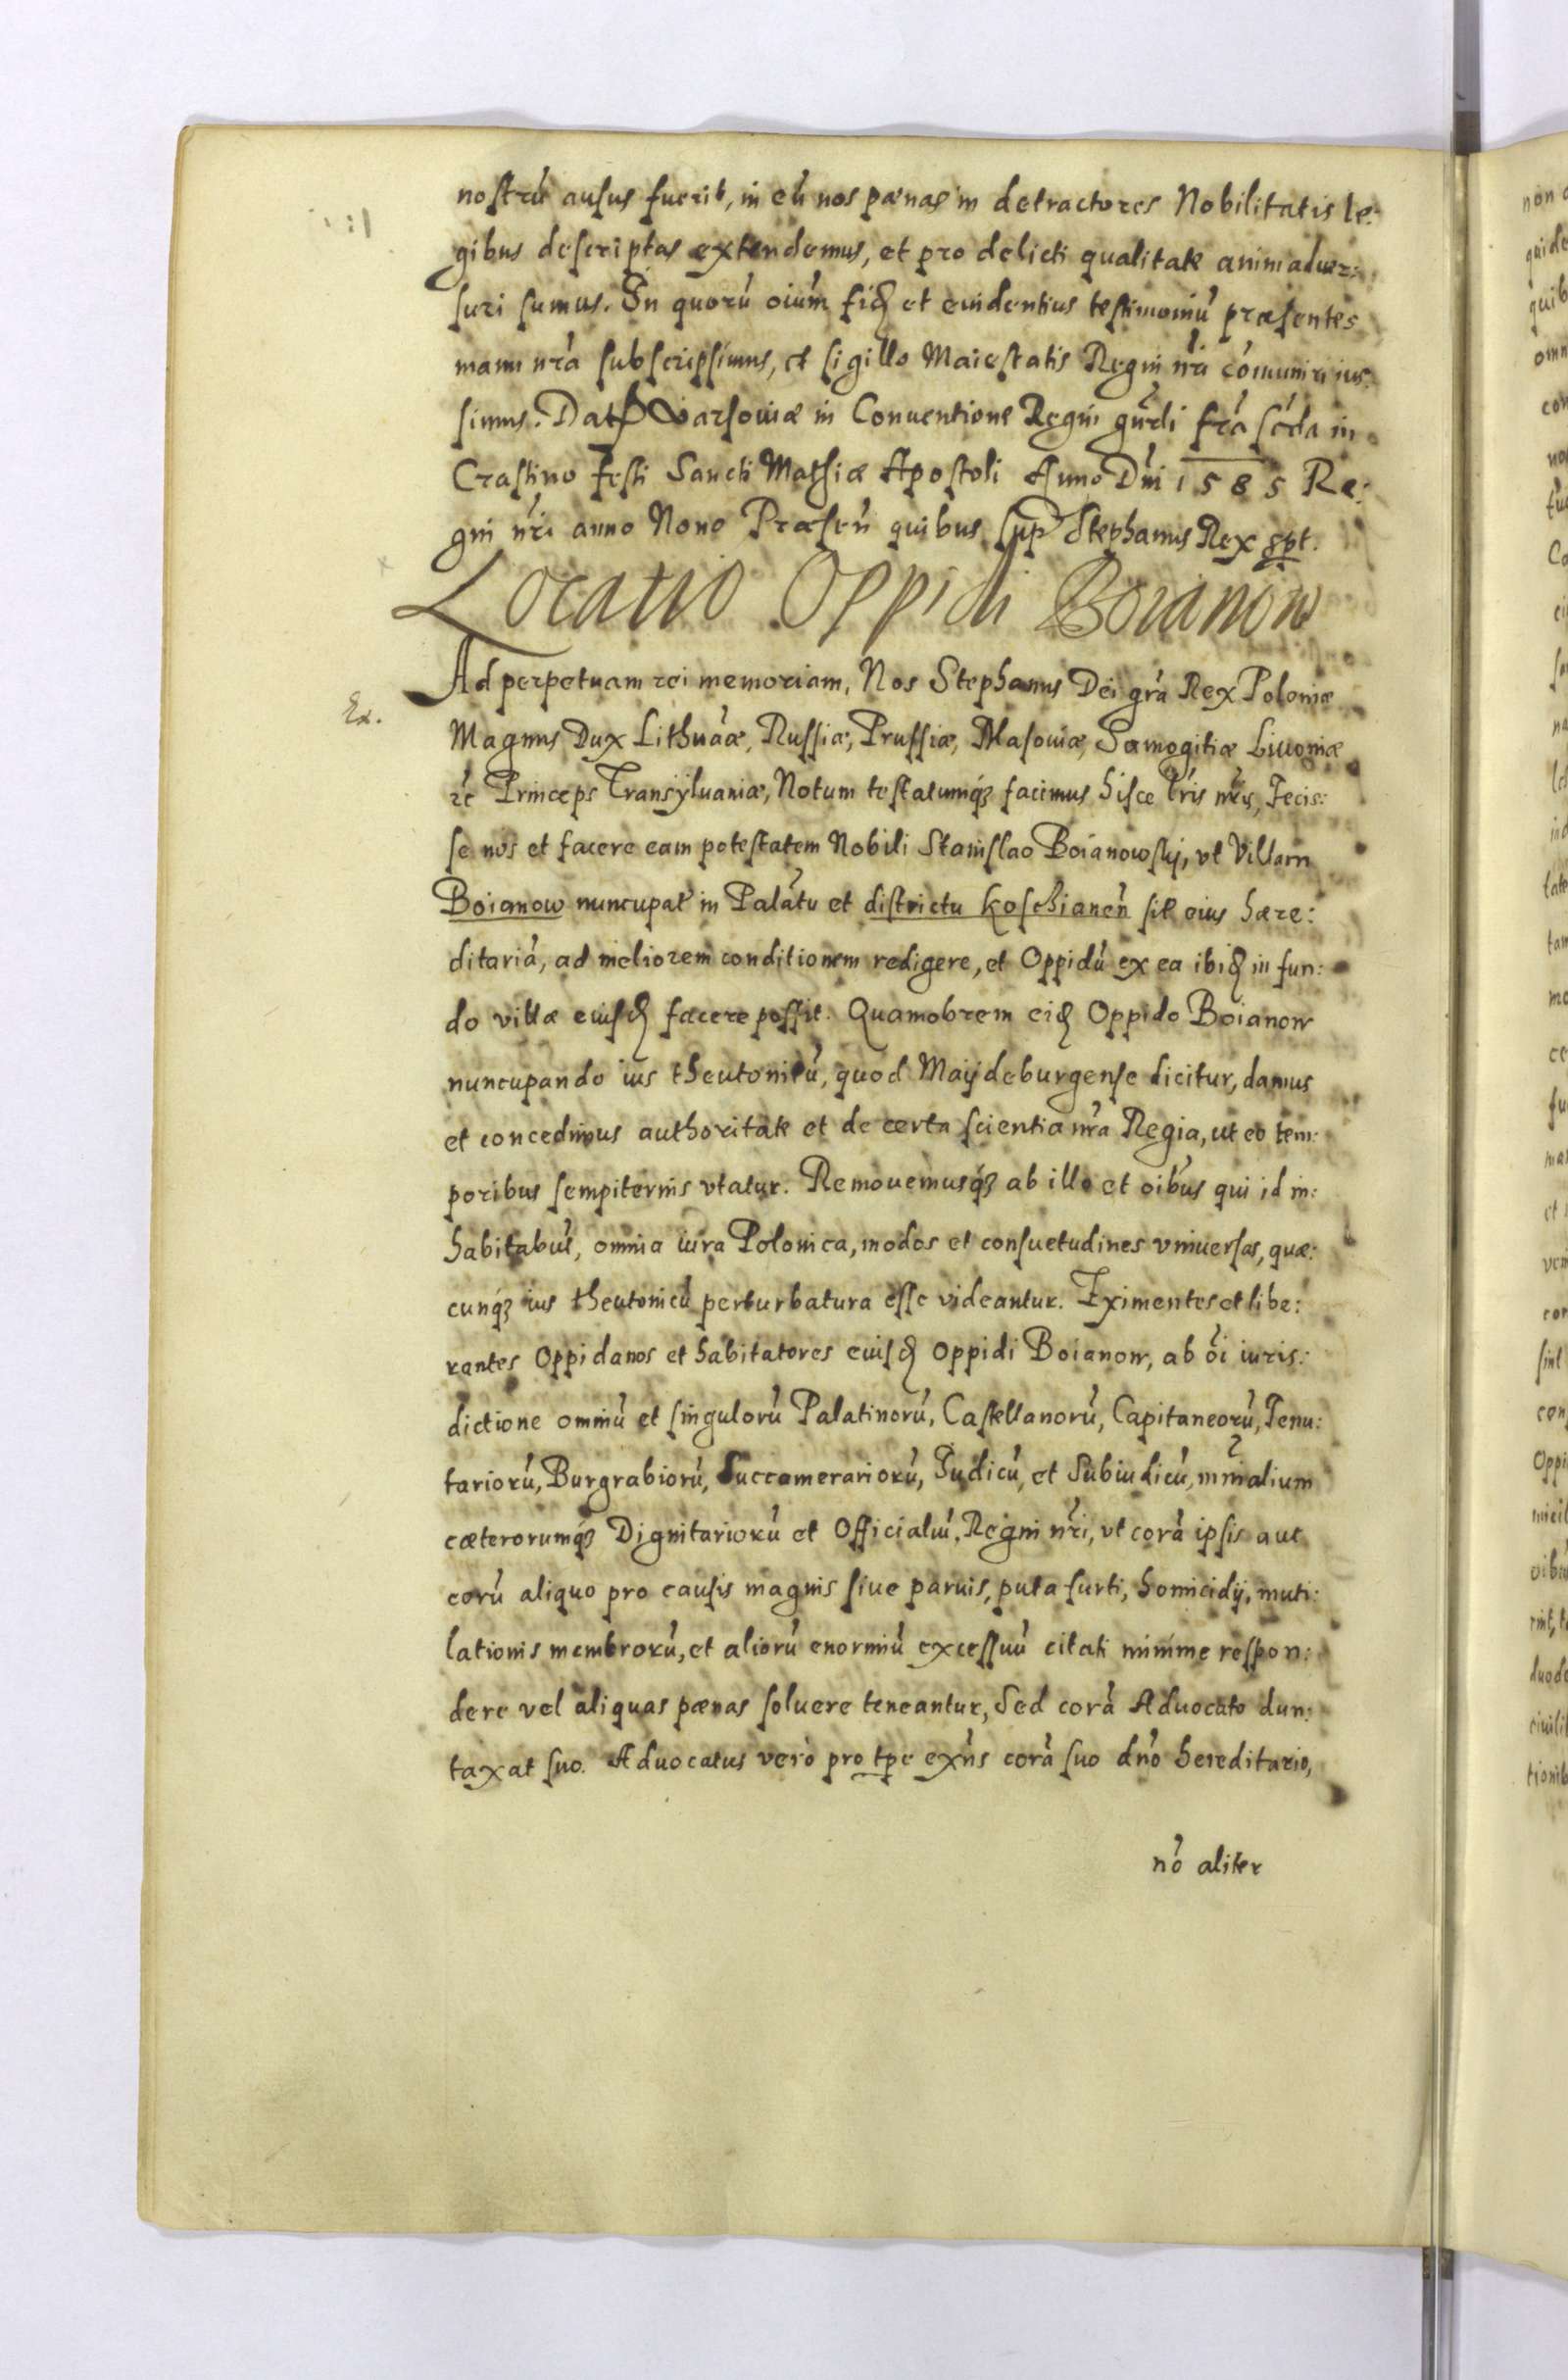 nostrũ ausus fuerit, in eũ nos pænas in detractores Nobilitatis le:
gibus descriptas extendemus, et pro delicti qualitate animaduer:
suri sumus. In quorũ oium̃ fid et euidentius testimoniũ præsentes
manu nrã subscripsimus, et sigillo Maiestatis Regni nri cõmuniri ius:
simus. Dat Varsouiæ in Conuentione Regni gñrli fra scda in
Crastino festi Sancti Mathiæ Apostoli Anno Dñi 1585 Re:
gni nri anno Nono Præsen̄ quibus sup Stephanus Rex spt.
Locatio Oppidi Boianow
Ex. Ad perpetuam rei memoriam, Nos Stephanus Dei gr̃a Rex Poloniæ
Magnus Dux Lithuãæ, Russiæ, Prussiæ, Masouiæ, Samogitiæ Liuoniæ
ꝛc Princeps Transyluaniæ, Notum testatumq́ꝫ facimus hisce lr̃is nr̃is, Fecis:
se nos et facere eam potestatem Nobili Stanislao Boianowskj, vt Villam
Boianow nuncupat̃ in Palãtu et districtu Koschianen̄ sit̃ eius hære:
ditariã, ad meliorem conditionem redigere, et Oppidũ ex ea ibid in fun:
do villæ eiusd facere possit. Quamobrem eid Oppido Boianow
nuncupando ius theutonicũ, quod Maijdeburgense dicitur, damus
et concedimus authoritate et de certa scientia nr̃a Regia, ut eo tem:
poribus sempiternis vtatur. Remouemusq́ꝫ ab illo et oibũs qui id in:
habitabũt, omnia iura Polonica, modos et consuetudines vniuersas, quæ:
cunq́ꝫ ius theutonicũ perturbatura esse videantur. Eximentes et libe:
rantes Oppidanos et habitatores eiusd Oppidi Boianow, ab oĩ iuris:
dictione omniũ et singulorũ Palatinorũ, Castellanorũ, Capitaneorũ, Tenu:
tariorũ, Burgrabiorũ, Succamerariorũ, Judicũ, et Subiudicũ, minĩalium
cæterorumq́ꝫ Dignitariorũ et Officialiũ, Regni nr̃i, vt corã ipsis aut
eorũ aliquo pro causis magnis siue paruis, puta furti, homicidij, muti:
lationis membrorũ, et aliorũ enormiũ excessuũ citati minime respon:
dere vel aliquas pænas soluere teneantur, Sed corã Aduocato dun:
taxat suo. Aduocatus vero pro tpe exñs corã suo dño hereditario,
nõ aliter